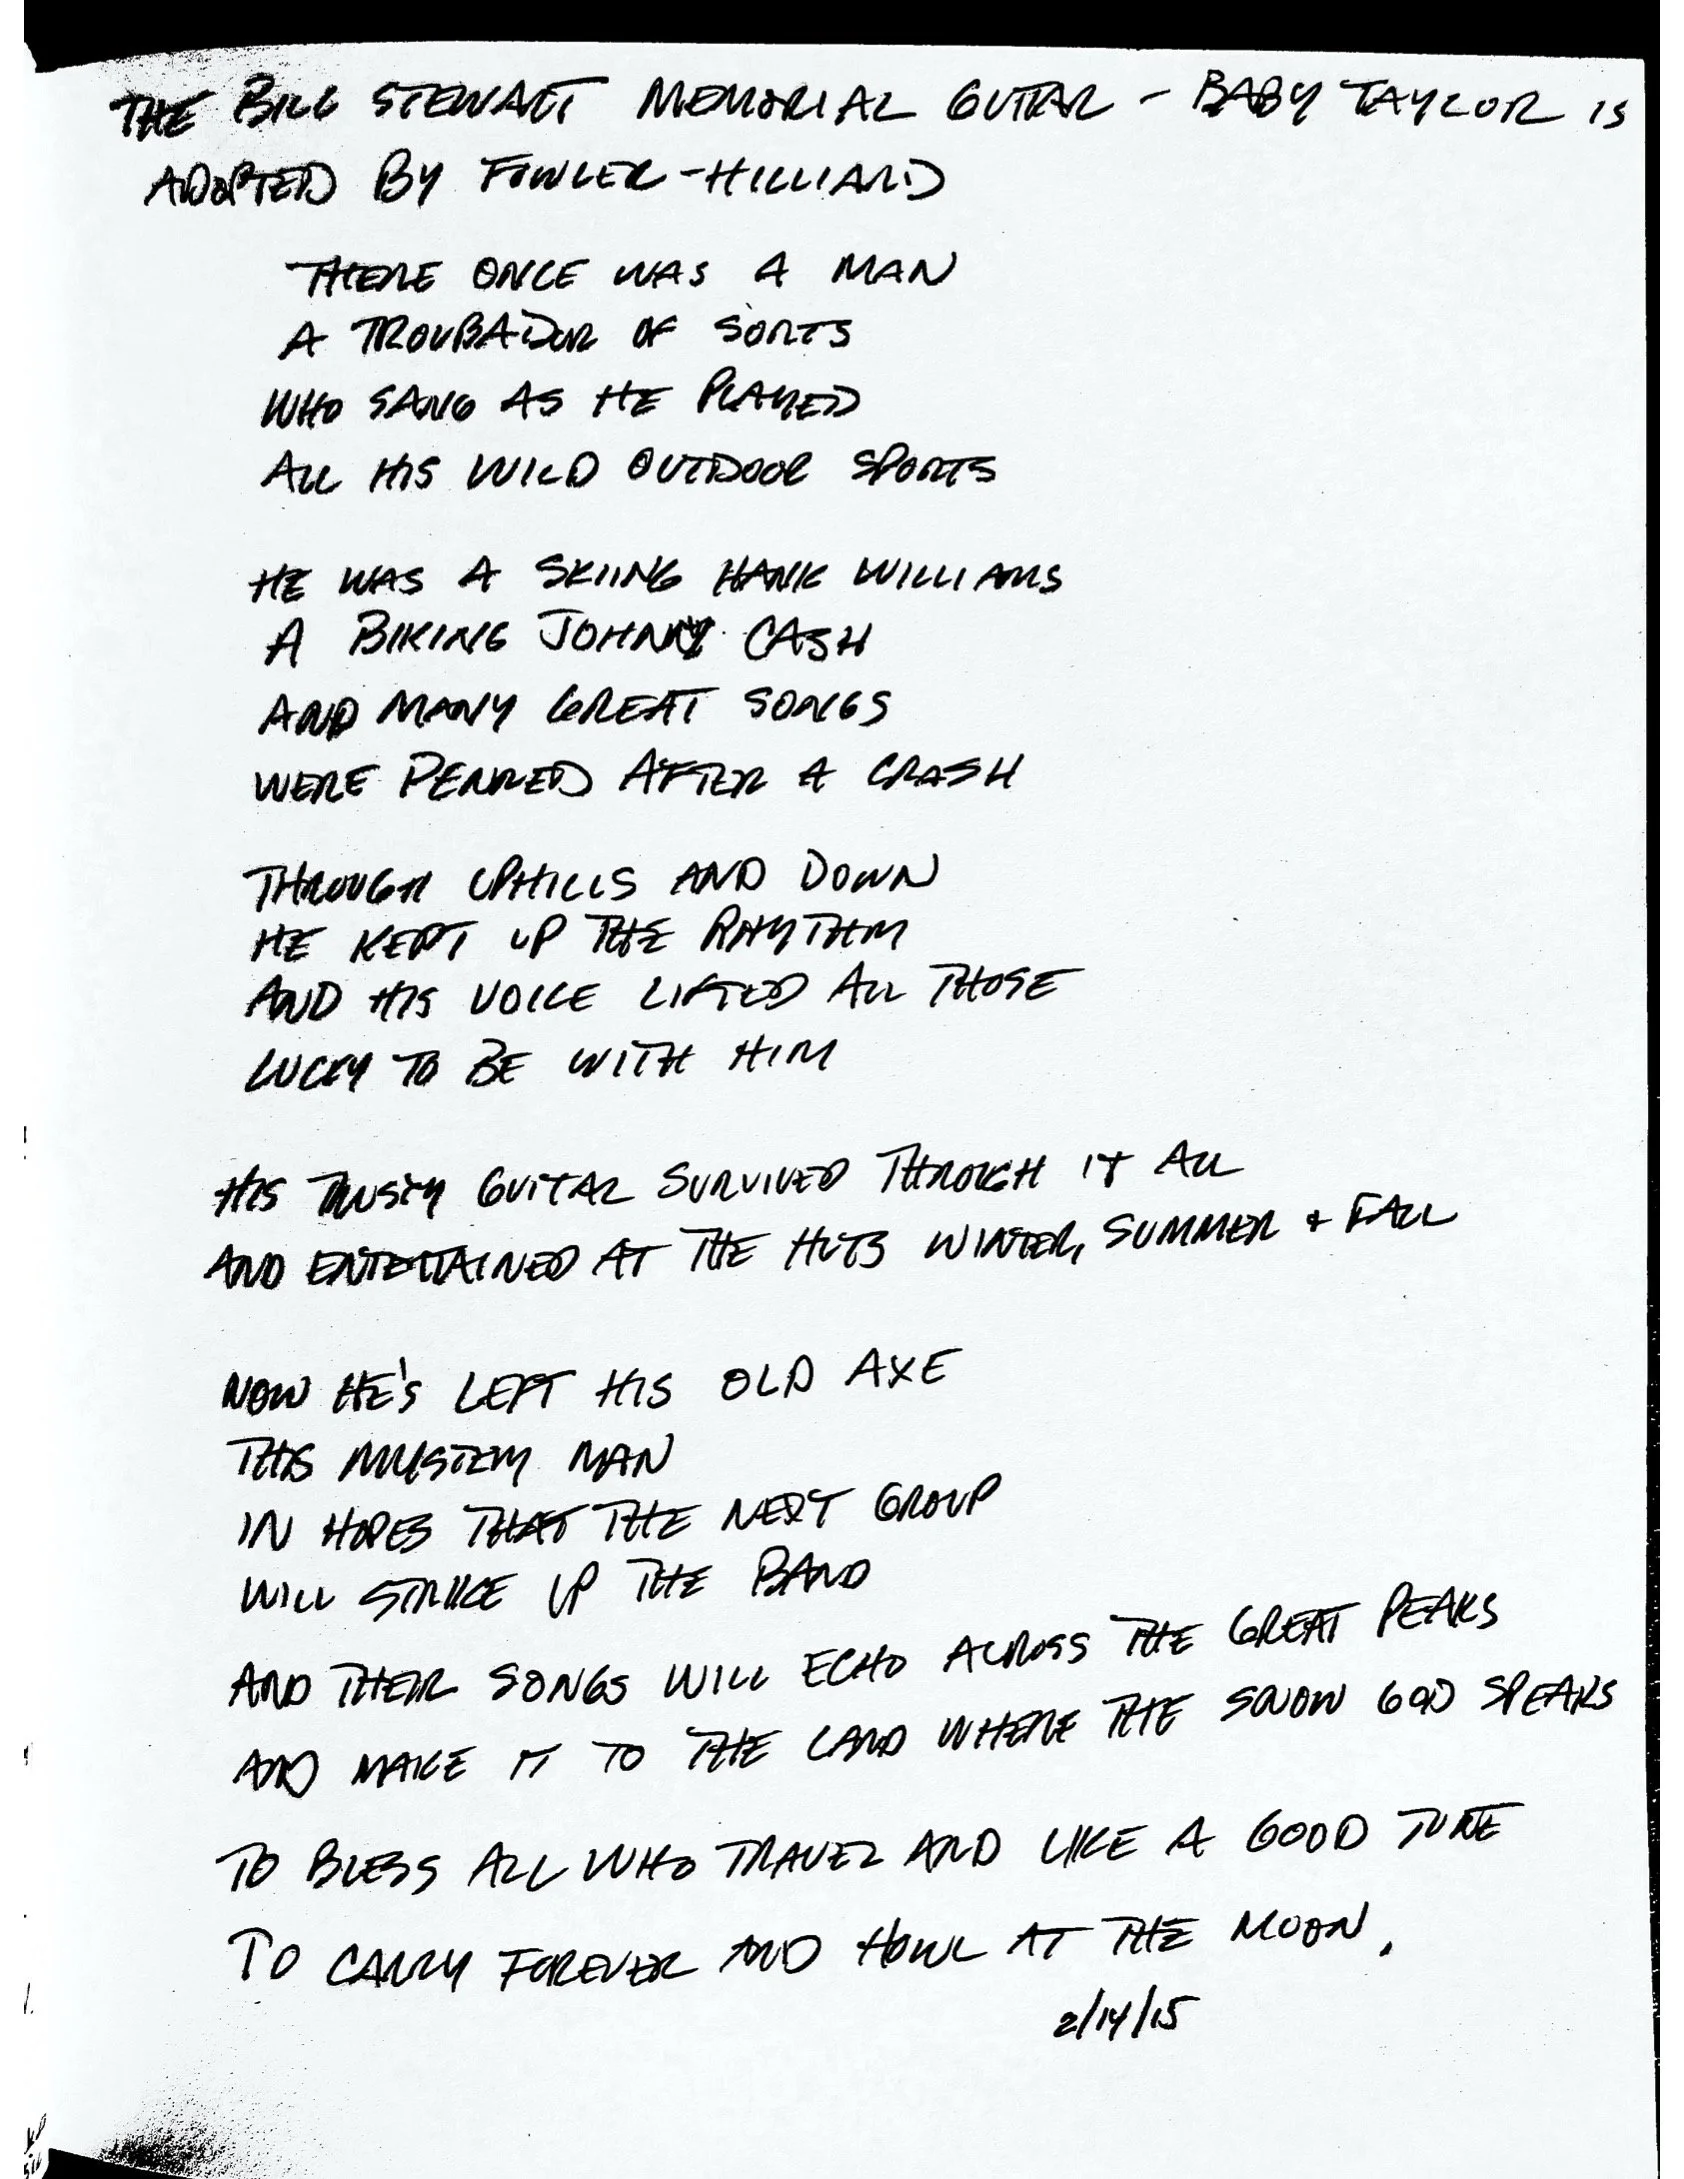 THE BILL STEWART MEMORIAL GUTAR - BABY TAYLOR IS
ADOPTED BY FOWLER-HILLIARD
THERE ONCE WAS A MAN
A TROUBADOUR OF SORTS
WHO SANG AS HE PLAYED
ALL HIS WILD OUTDOOR SPORTS
HE WAS A SKIING HANK WILLIAMS
A BIKING JOHNNY CASH
AND MANY GREAT SONGS
WERE PENNED AFTER A CRASH
THROUGH UPHILLS AND DOWN
HE KEPT UP THE RHYTHM
AND HIS VOICE LIFTED ALL THOSE
LUCKY TO BE WITH HIM
HIS TRUSTY GUITAR SURVIVED THROUGH IT ALL
AND ENTERTAINED AT THE HUTS WINTER, SUMMER + FALL
NOW HE'S LEFT HIS OLD AXE
THIS MYSTERY MAN
IN HOPES THAT THE NEXT GROUP
WILL STRIKE UP THE BAND
AND THEIR SONGS WILL ECHO ACROSS THE GREAT PEAKS
AND MAKE IT TO THE LAND WHERE THE SNOW GOD SPEAKS
TO BLESS ALL WHO TRAVEL AND LIKE A GOOD TUNE
TO CARRY FOREVER AND HOWL AT THE MOON.
2/14/15